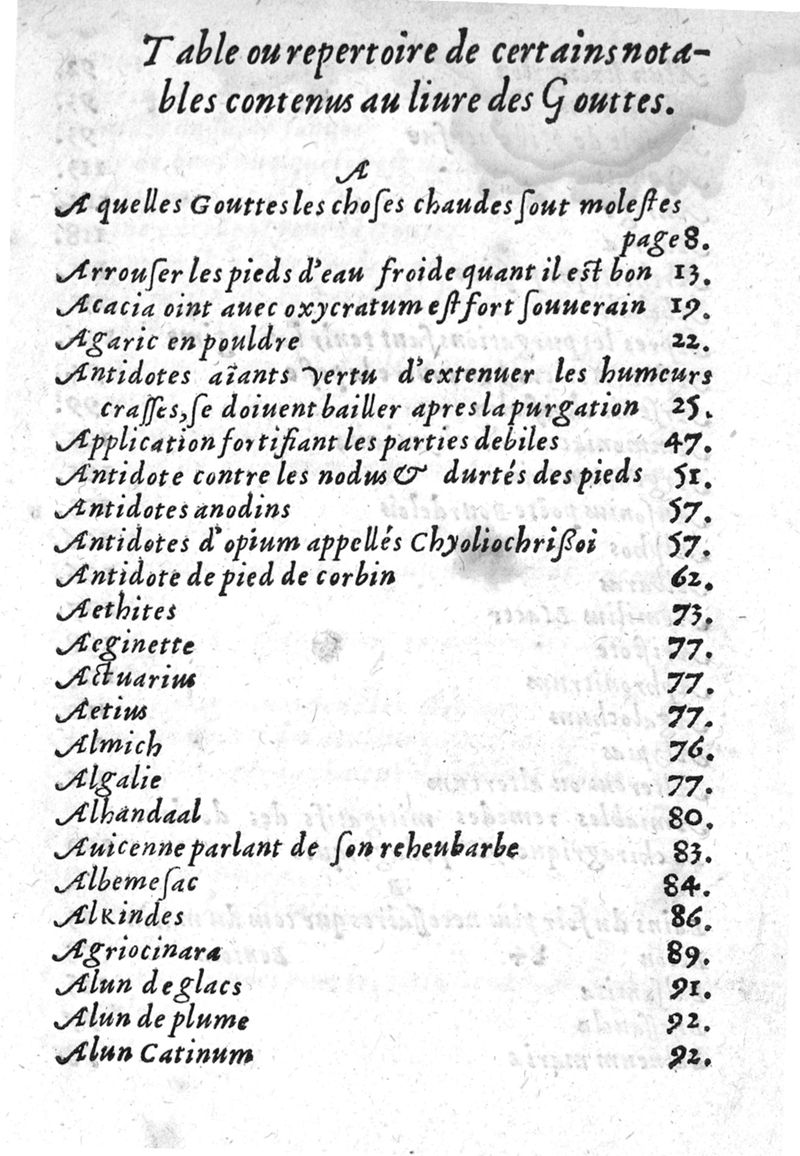 Table ou repertoire de certains nota-
bles contenus au liure des Gouttes.
A
A quelles Gouttes les choſes chaudes ſout moleſtes
page 8.
Arrouſer les pieds d'eau froide quant il eſt bon 13.
Acacia oint auec oxycratum eſt fort ſouuerain 19.
Agaric en pouldre 22.
Antidotes aïants vertu d'extenuer les humeurs
craſſes, ſe doiuent bailler apres la purgation 25.
Application fortifiant les parties debiles 47.
Antidote contre les nodus & durtés des pieds 51.
Antidotes anodins 57.
Antidotes d'opium appellés Chyoliochriſsoi 57.
Antidote de pied de corbin 62.
Aethites 73.
Aeginette 77.
Actuarius 77.
Aetius 77.
Almich 76.
Algalie 77.
Alhandaal 80.
Auicenne parlant de ſon reheubarbe 83.
Albemeſac 84.
Alkindes 86.
Agriocinara 89.
Alun de glacs 91.
Alun de plume 92.
Alun Catinum 92.